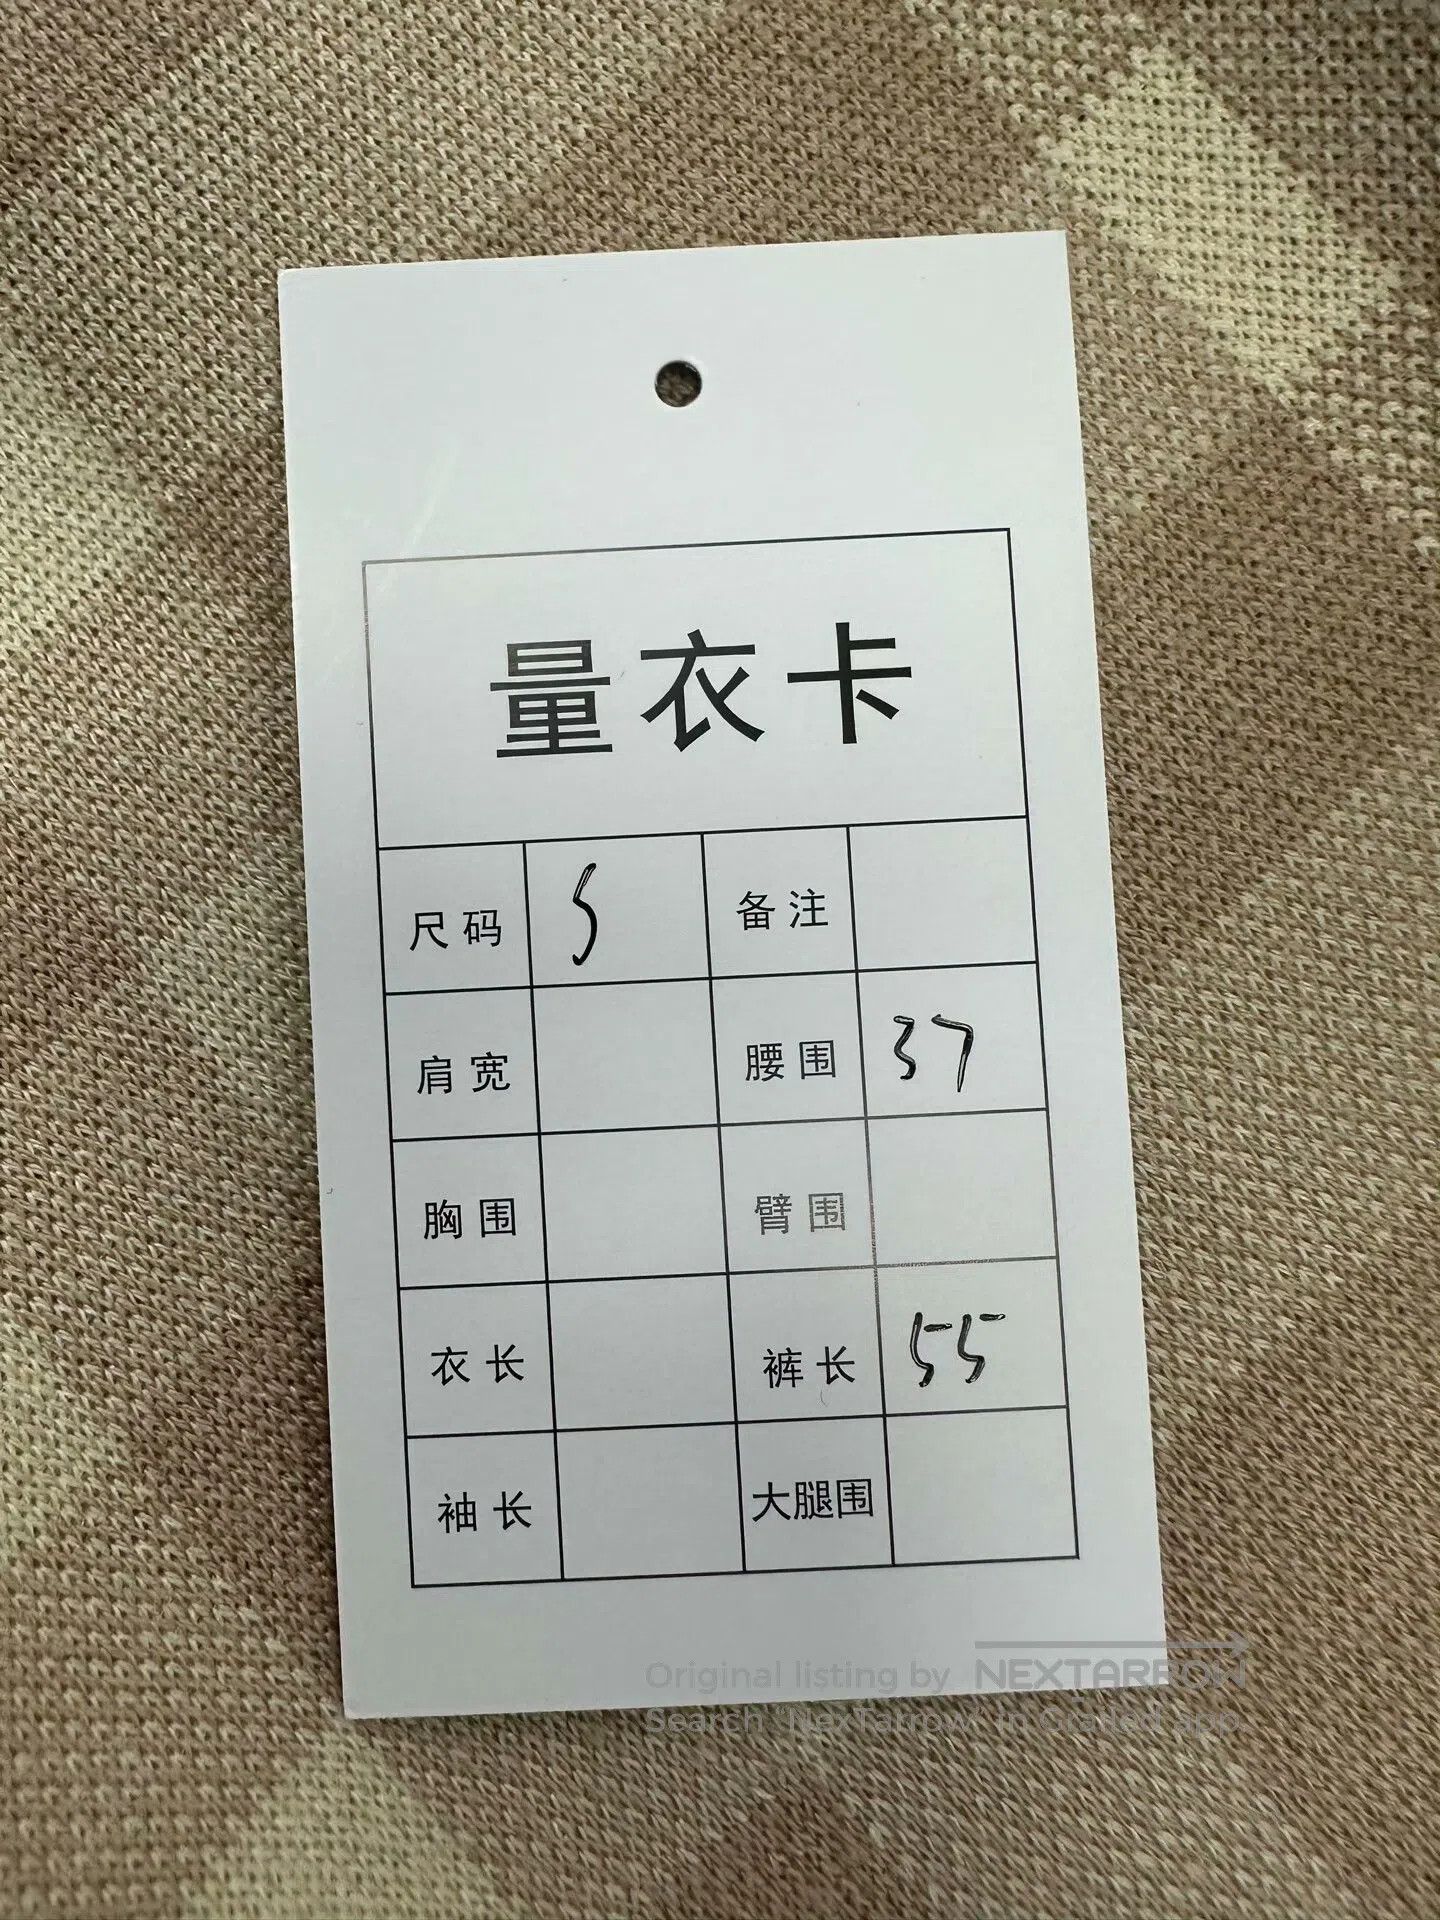 量衣卡
尺码 S 备注
肩宽 腰围 37
胸围 臂围
衣长 裤长 55
袖长 大腿围
Original listing by NEXTARROW
Search "NexTarrow" in Grailed app.